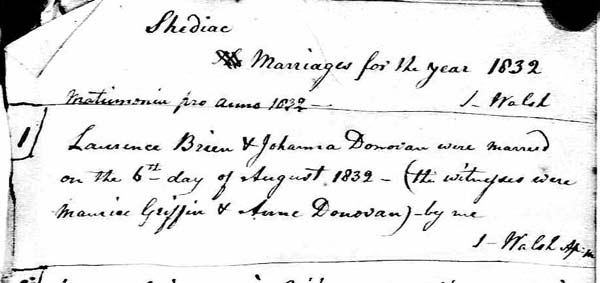 Shediac
Marriages for the year 1832
Matrimonia pro anno 1832 — J Walsh
1 Laurence Brien & Johanna Donovan were married
on the 6th day of August 1832 – (the witnesses were
Maurice Griffin & Anne Donovan) – by me
J – Walsh Ap. M